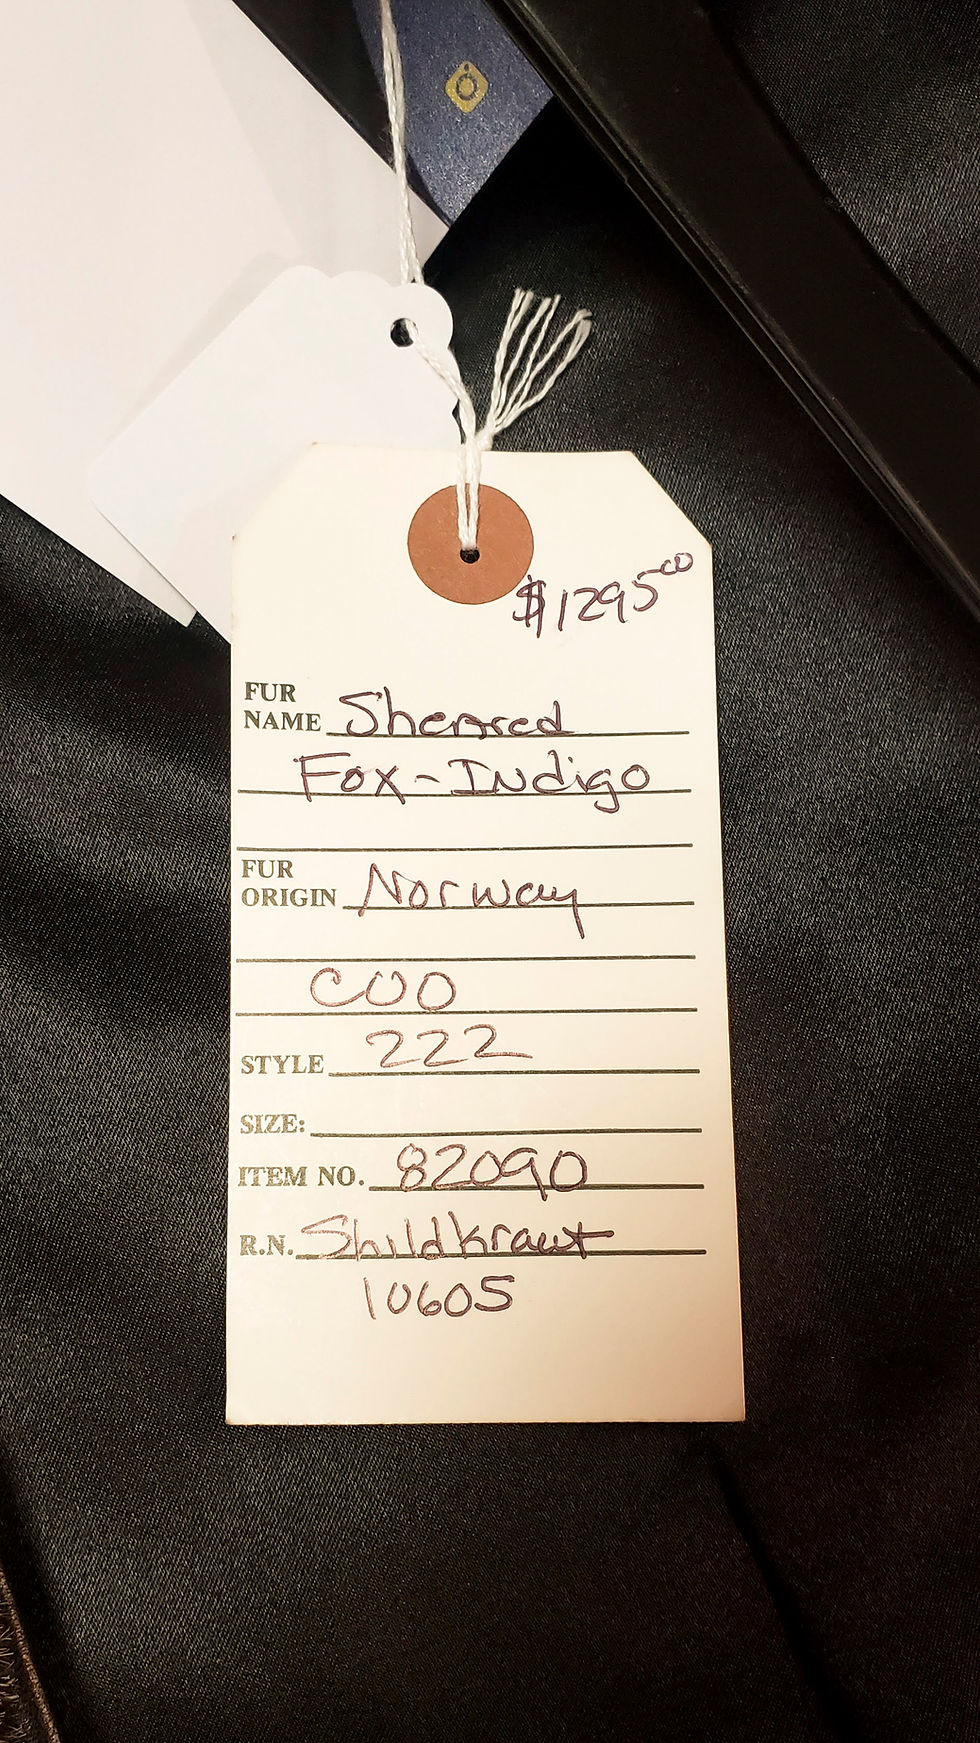 $1295.00
FUR
NAME Sheared
Fox-Indigo
FUR
ORIGIN Norway
COO
STYLE 222
SIZE:
ITEM NO. 82090
R.N. Shildkraut
10605